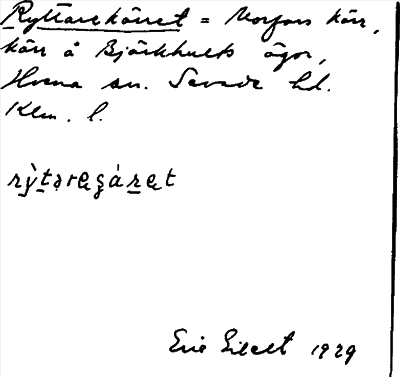 Ryttarekärret = Morfars kärr,
kärr å Björkhults ägor,
Horna sn. Sevede hd.
Klm. l.
rỳtaregá̧ret
Eric Elselt 1929